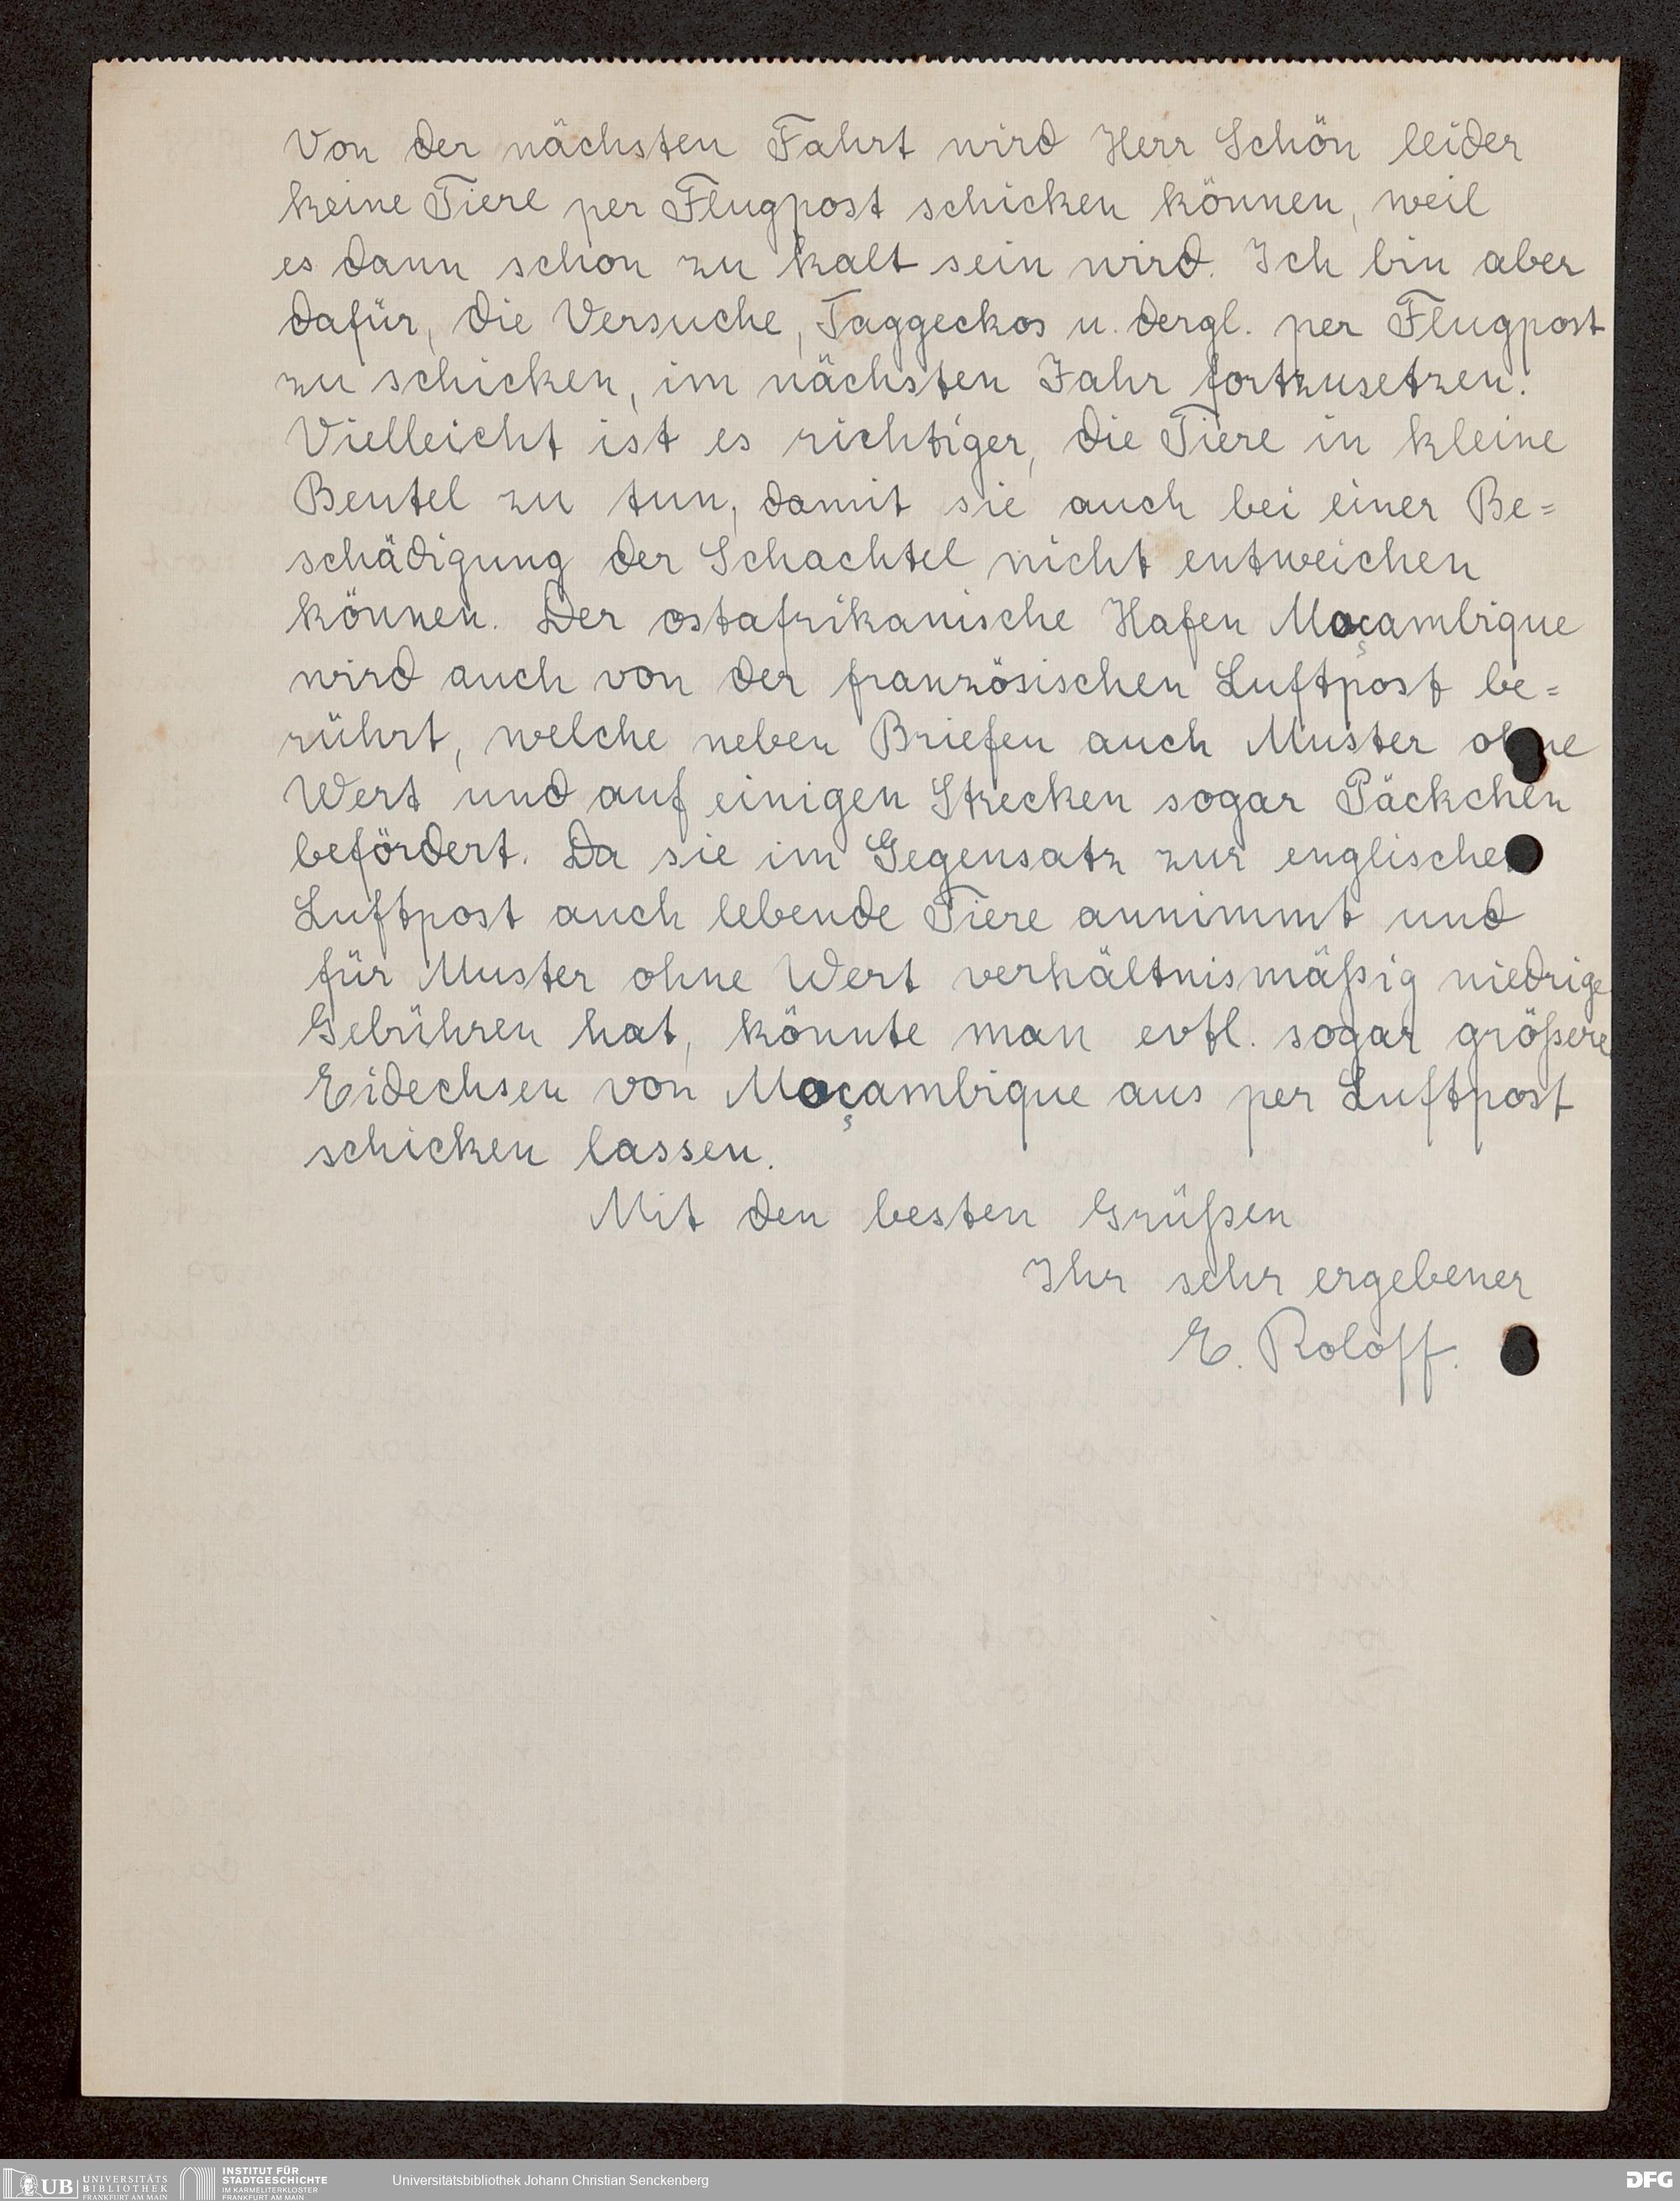 Von der nächsten Fahrt wird Herr Schön leider
keine Tiere per Flugpost schicken können, weil
es dann schon zu kalt sein wird. Ich bin aber
dafür, die Versuche, Taggeckos u. dergl. per Flugpost
zu schicken, im nächsten Jahr fortzusetzen.
Vielleicht ist es richtiger, die Tiere in kleine
Beutel zu tun, damit sie auch bei einer Be=
schädigung der Schachtel nicht entweichen
können. Der ostafrikanische Hafen Moçambique
wird auch von der französischen Luftpost be=
rührt, welche neben Briefen auch Muster ohne
Wert und auf einigen Strecken sogar Päckchen
befördert. Da sie im Gegensatz zur englischen
Luftpost auch lebende Tiere annimmt und
für Muster ohne Wert verhältnismäßig niedrige
Gebühren hat, könnte man evtl. sogar größere
Eidechsen von Moçambique aus per Luftpost
schicken lassen.
Mit den besten Grüßen
Ihr sehr ergebener
E. Roloff.
UB UNIVERSITÄTS BIBLIOTHEK FRANKFURT AM MAIN
INSTITUT FÜR STADTGESCHICHTE IM KARMELITERKLOSTER FRANKFURT AM MAIN
Universitätsbibliothek Johann Christian Senckenberg
DFG